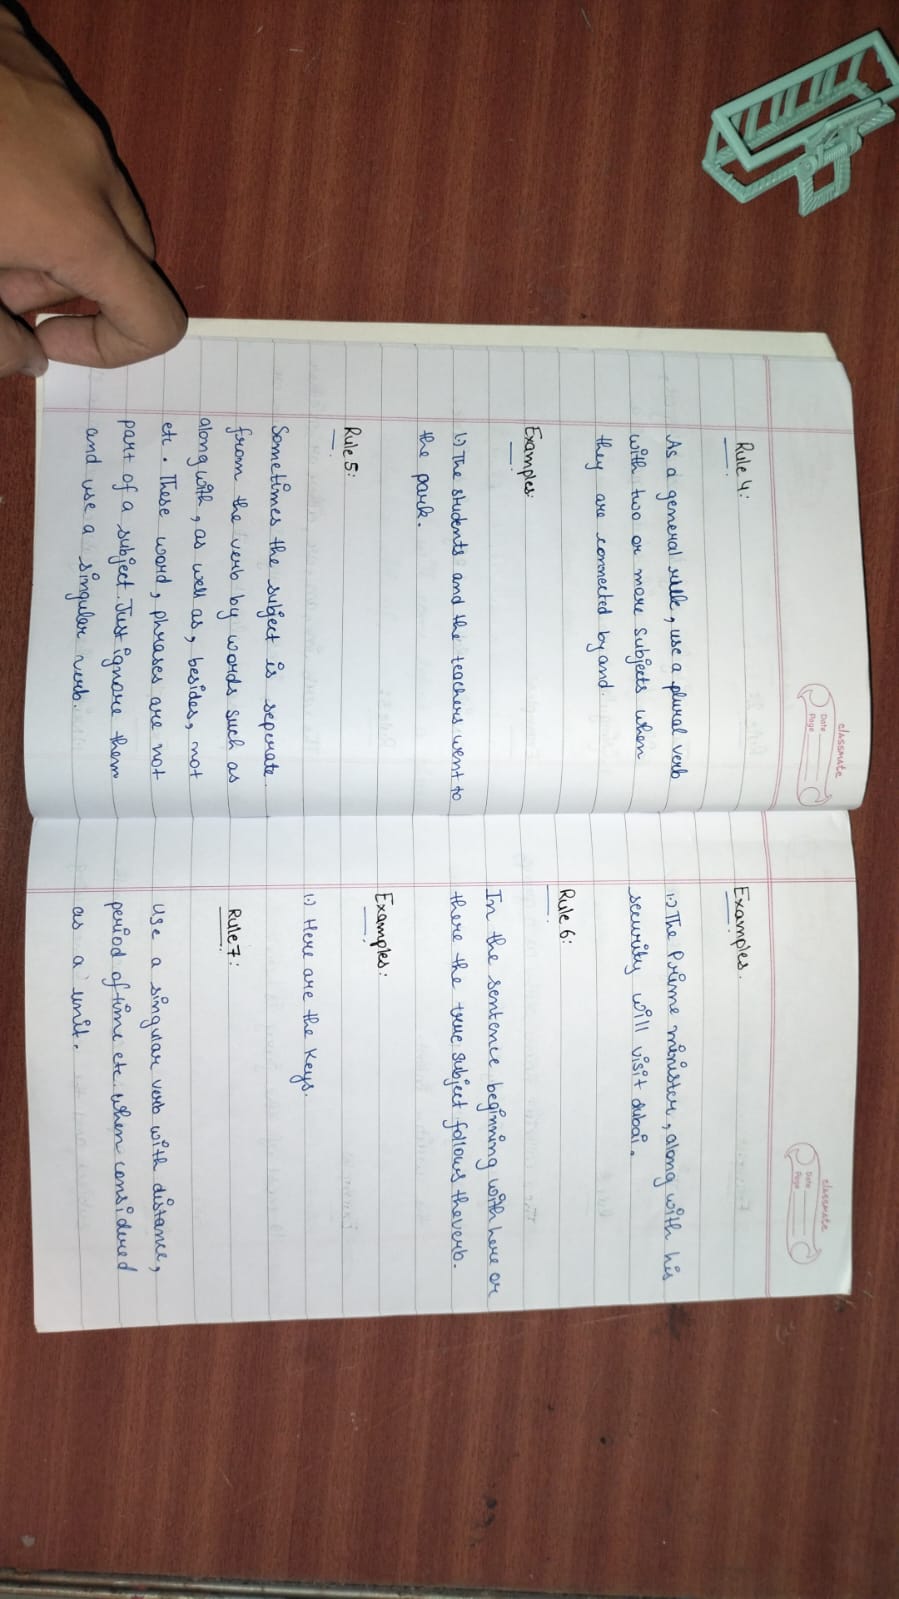 classmate
Date
Page
Rule 4:
As a general rule, use a plural verb
with two or more subjects when
they are connected by and.
Examples:
1.) The students and the teachers went to
the park.
Rule 5:
Sometimes the subject is seperate
from the verb by words such as
along with, as well as, besides, not
etc. These word, phrases are not
part of a subject. Just ignore them
and use a singular verb.
classmate
Date
Page
Examples.
1.) The Prime minister, along with his
security will visit dubai.
Rule 6:
In the sentence beginning with here or
there the true subject follows the verb.
Examples:
1.) Here are the Keys.
Rule 7:
Use a singular verb with distance,
period of time etc. when considered
as a unit.